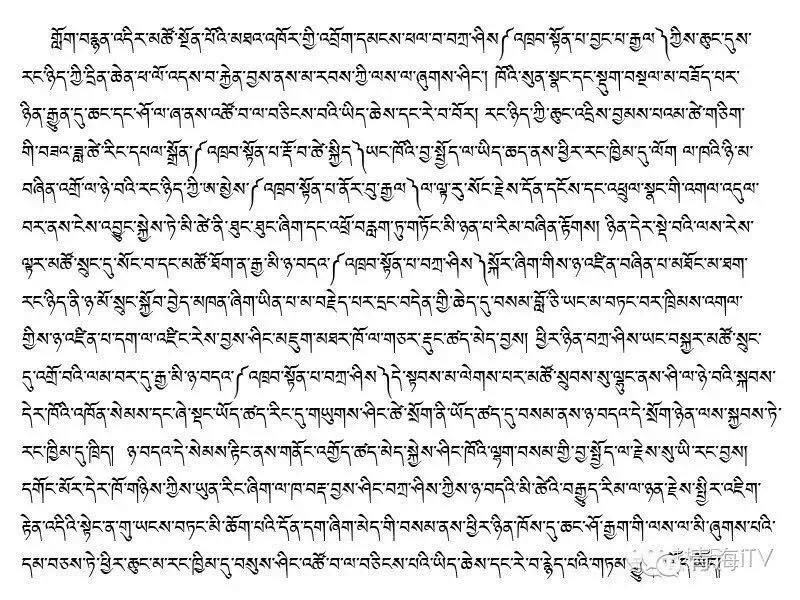 གློག་བརྙན་འདིར་མཚོ་སྔོན་པོའི་མཐའ་འཁོར་གྱི་འབྲོག་དམངས་ཕལ་བ་བཀྲ་ཤིས༼འཁྲབ་སྟོན་པ་བྱང་པ་རྒྱལ༽ཀྱིས་ཆུང་དུས་
རང་ཉིད་ཀྱི་དྲིན་ཆེན་ཕ་ལོ་འདས་བ་རྐྱེན་བྱས་ནས་མ་རབས་ཀྱི་ལས་ལ་ཞུགས་ཤིང་། ཁོའི་སུན་སྣང་དང་སྡུག་བསྔལ་མ་བཟོད་པར་
ཉིན་རྒྱུན་དུ་ཆང་དང་ཤོ་ལ་ཞེན་ནས་འཚོ་བ་ལ་བཅིངས་བའི་ཡིད་ཆེས་དང་རེ་བ་བོར། རང་ཉིད་ཀྱི་ཆུང་འདྲིས་བྱམས་པའམ་ཚེ་གཅིག་
གི་བཟའ་ཟླ་ཚེ་རིང་དཔལ་སྒྲོན་༼འཁྲབ་སྟོན་པ་རྡོ་བ་ཚེ་སྐྱིད༽ཡང་ཁོའི་བྱ་སྤྱོད་ལ་ཡིད་ཆད་ནས་ཕྱིར་རང་ཁྱིམ་དུ་ལོག ལ་ཁའི་ཉི་མ་
བཞིན་འགྲོ་ལ་ཉེ་བའི་རང་ཉིད་ཀྱི་ཨ་མྱེས་༼འཁྲབ་སྟོན་པ་ནོར་བུ་རྒྱལ༽ལ་ལྟ་རུ་སོང་རྗེས་དོན་དངོས་དང་འཕྲུལ་སྣང་གི་འགལ་འདུལ་
བར་ནས་ངེས་འབྱུང་སྐྱེས་ཏེ་མི་ཚེ་ནི་ཐུང་ཐུང་ཞིག་དང་འཕྲོ་བརླག་ཏུ་གཏོང་མི་ཉན་པ་རིམ་བཞིན་རྟོགས། ཉིན་དེར་སྡེ་བའི་ལས་རེས་
ལྟར་མཚོ་སྲུང་དུ་སོང་བ་དང་མཚོ་ཐོག་ན་རྒྱ་མི་ཉ་བདའ་༼འཁྲབ་སྟོན་པ་བཀྲ་ཤིས༽སྐོར་ཞིག་གིས་ཉ་འཛིན་བཞིན་པ་མཐོང་མ་ཐག་
རང་ཉིད་ནི་ཉ་མོ་སྲུང་སྐྱོབ་བྱེད་མཁན་ཞིག་ཡིན་པ་མ་བརྗེད་པར་དྲང་བདེན་གྱི་ཆེད་དུ་བསམ་བློ་ཅི་ཡང་མ་བཏང་བར་ཁྲིམས་འགལ་
གྱིས་ཉ་འཛིན་པ་དག་ལ་འཛིང་རེས་བྱས་ཤིང་མཇུག་མཐར་ཁོ་ལ་གཅར་རྡུང་ཚད་མེད་བྱས། ཕྱིར་ཉིན་བཀྲ་ཤིས་ཡང་བསྐྱར་མཚོ་སྲུང་
དུ་འགྲོ་བའི་ལམ་བར་དུ་རྒྱ་མི་ཉ་བདའ་༼འཁྲབ་སྟོན་པ་བཀྲ་ཤིས༽དེ་སྟབས་མ་ལེགས་པར་མཚོ་སྲུབས་སུ་ལྷུང་ནས་ཤི་ལ་ཉེ་བའི་སྐབས་
དེར་ཁོའི་འཁོན་སེམས་དང་ཞེ་སྡང་ཡོད་ཚད་རིང་དུ་གཡུགས་ཤིང་ཚེ་སྲོག་ནི་ཡོད་ཚད་དུ་བསམ་ནས་ཉ་བདའ་དེ་སྲོག་ཉེན་ལས་སྐྱབས་ཏེ་
རང་ཁྱིམ་དུ་ཁྲིད། ཉ་བདའ་དེ་སེམས་རྟིང་ནས་གནོང་འགྱོད་ཚད་མེད་སྐྱེས་ཤིང་ཁོའི་ལྷག་བསམ་གྱི་བྱ་སྤྱོད་ལ་རྗེས་སུ་ཡི་རང་བྱས།
དགོང་མོར་དེར་ཁོ་གཉིས་ཀྱིས་ཡུན་རིང་ཞིག་ལ་ཁ་བརྡ་བྱས་ཤིང་བཀྲ་ཤིས་ཀྱིས་ཉ་བདའི་མི་ཚེའི་བརྒྱུད་རིམ་ལ་ཉན་རྗེས་སྤྱིར་འཇིག་
རྟེན་འདིའི་སྟེང་ན་གུ་ཡངས་བཏང་མི་ཆོག་པའི་དོན་དག་ཞིག་མེད་གི་བསམ་ནས་ཕྱིར་ཉིན་ཁོས་དུ་ཆང་ཤོ་རྒྱག་གི་ལས་ལ་མི་ཞུགས་པའི་
དམ་བཅས་ཏེ་ཕྱིར་ཆུང་མ་རང་ཁྱིམ་དུ་བསུས་ཤིང་འཚོ་བ་ལ་བཅིངས་པའི་ཡིད་ཆེས་དང་རེ་བ་རྙེད་པའི་གཏམ་རྒྱུད་
青海iTV